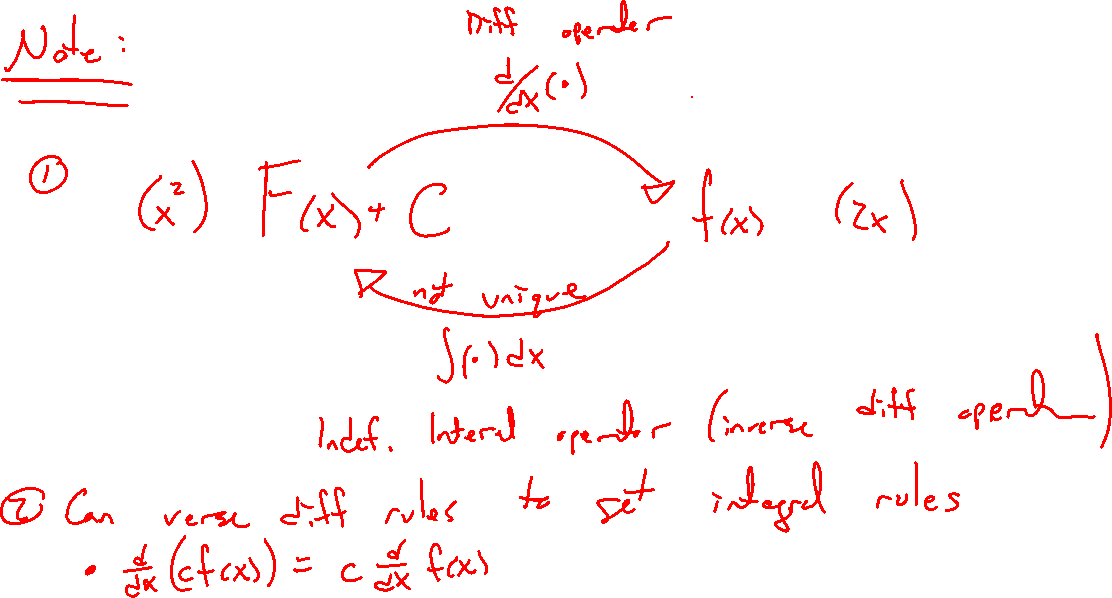 Note:
Diff operator
d/dx (·)
① (x²) F(x) + C f(x) (2x)
not unique
∫(·) dx
Indef. Interal operator (inverse diff operator)
② Can verse diff rules to get integral rules
• d/dx (cf(x)) = c d/dx f(x)